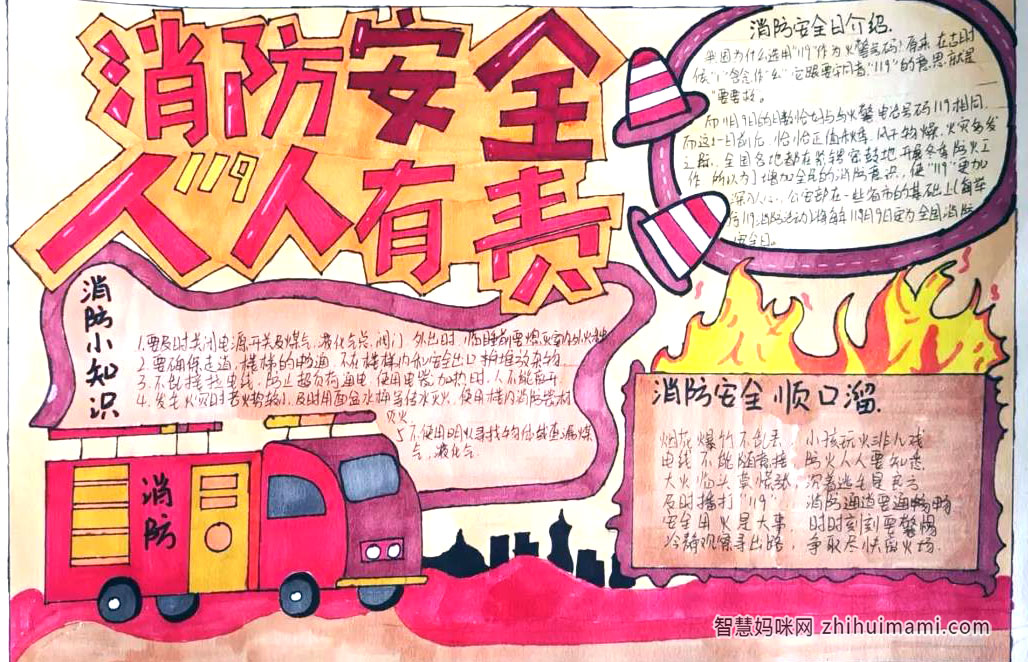 消防安全
人119人有责
消防安全日介绍.
"要要救。
而11月9日的日数恰好与火警电话号码119相同
而这一日前后,恰恰正值秋季,风干物燥,火灾多发
之际,全国各地都在紧锣密鼓地开展冬季防火工
作 所以为了增加全民的消防意识,使"119"更加
深入人心,公安部在一些省市的基础上
119消防活动 将每年11月9日定为全国消防
安全日。
消防小知识
1.要及时关闭电源开关及煤气、液化气 阀门 外出时、临睡前要熄灭室内火种
2.要确保走道,楼梯的畅通,不在楼梯内和安全出口 堆放杂物
3.不乱接拉电线,防止超负荷通电,使用电器加热时,人不能离开
4.发生火灾时若火势较小,及时用面盆水桶等传水灭火,使用楼内消防器材
灭火
5.不使用明火寻找物品或查漏煤
气,液化气.
消防
消防安全顺口溜.
烟花爆竹不乱丢,小孩玩火非儿戏
电线不能随意接,防火人人要知悉
大火临头莫惊慌,沉着逃生是良方
及时播打"119",消防通道要通畅畅
安全用火是大事,时时刻刻要警惕
冷静观察寻出路,争取尽快离火场.
智慧妈咪网 zhihuimami.com